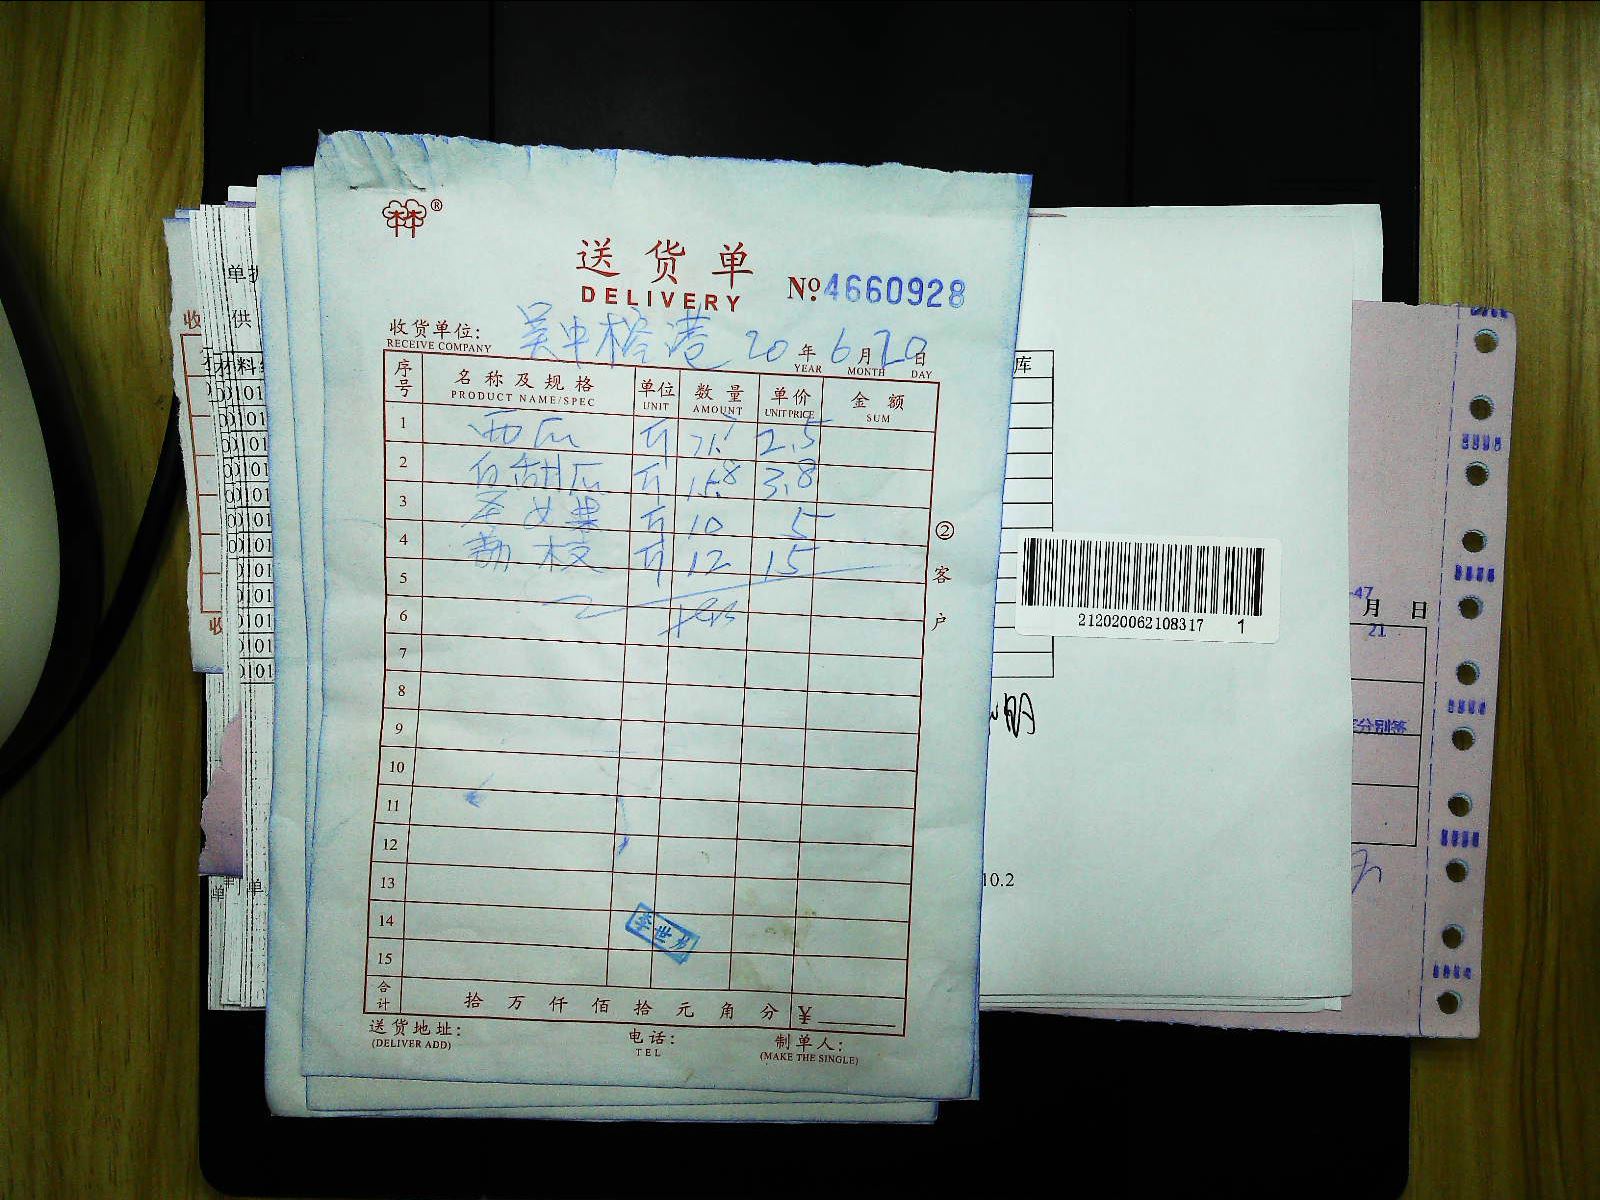 ®
送货单
DELIVERY
№ 4660928
收货单位: 吴中榕港 20年6月20日
RECEIVE COMPANY YEAR MONTH DAY
序号 名称及规格 单位 数量 单价 金额
PRODUCT NAME/SPEC UNIT AMOUNT UNIT PRICE SUM
1 西瓜 斤 2.5
2 白甜瓜 斤 15.8 3.8
3 圣女果 斤 10 5
4 荔枝 斤 12 15
5
6
7
8
9
10
11
12
13
14
15
合计 拾 万 仟 佰 拾 元 角 分 ¥
送货地址: 电话: 制单人:
(DELIVER ADD) TEL (MAKE THE SINGLE)
② 客户
212020062108317 1
库
10.2
-47
月 日
21
分别签
单
供
收
材料
0101
收
单